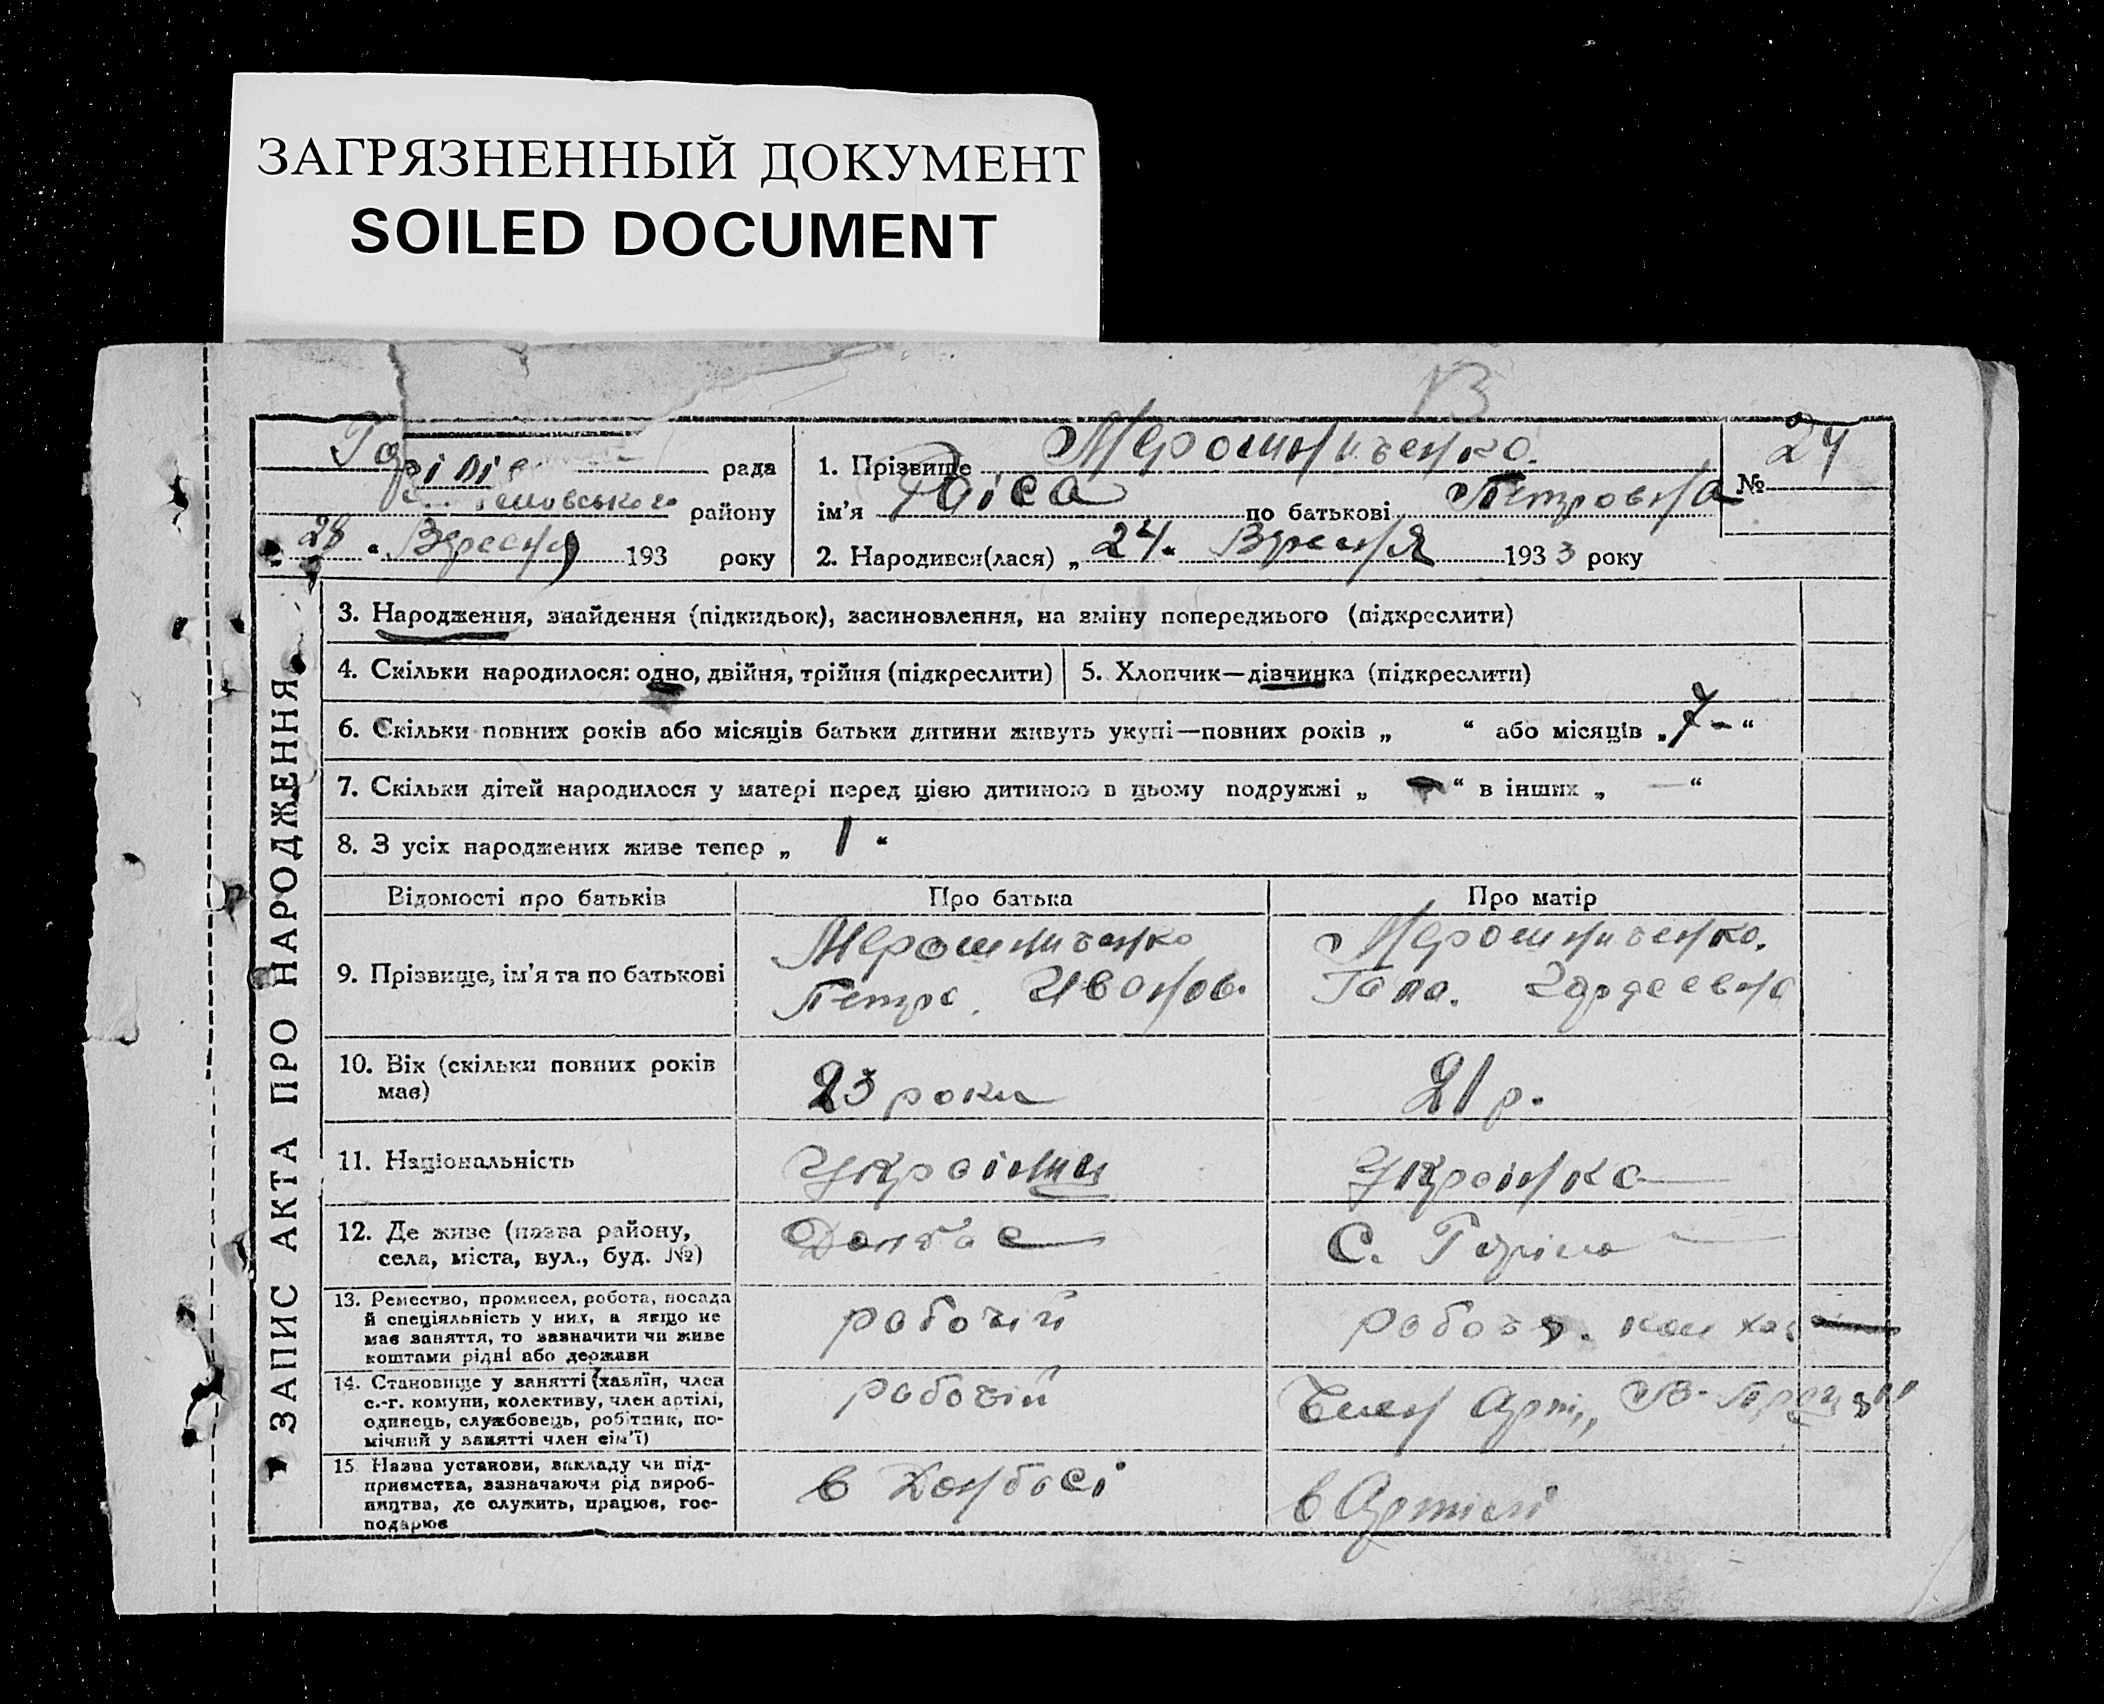 ЗАГРЯЗНЕННЫЙ ДОКУМЕНТ
SOILED DOCUMENT
рада
району
28 “ Вересня 193 року
1. Прізвище Мерошниченко.
ім’я Раіса по батькові Петровна
№ 24
2. Народився(лася) „ 24. Вресня 193 3 року
ЗАПИС АКТА ПРО НАРОДЖЕННЯ
3. Народження, знайдення (підкидьок), засиновлення, на зміну попереднього (підкреслити)
4. Скільки народилося: одно, двійня, трійня (підкреслити)
5. Хлопчик—дівчинка (підкреслити)
6. Скільки повних років або місяців батьки дитини живуть укупі—повних років „ “ або місяців „ 7 - “
7. Скільки дітей народилося у матері перед цією дитиною в цьому подружжі „ - “ в інших „ — “
8. З усіх народжених живе тепер „ 1 “
Відомості про батьків
Про батька
Про матір
9. Прізвище, ім’я та по батькові
Мерошниченко
Петро. Иванов.
Мерошниченко.
Гапа. Гордеевна
10. Вік (скільки повних років
має)
23 роки
21 р.
11. Національність
Украінец
Украінка
12. Де живе (назва району,
села, міста, вул., буд. №)
Донбас
С.
13. Ремество, промисел, робота, посада
й спеціяльність у них, а якщо не
має заняття, то зазначити чи живе
коштами рідні або держави
рабочій
14. Становище у занятті (хазяїн, член
с.-г. комуни, колективу, член артілі,
одинець, службовець, робітник, по-
мічний у занятті член сім’ї)
рабочій
Член Арт.
15 Назва установи, закладу чи під-
приємства, зазначаючи рід вироб-
ництва, де служить, працює, гос-
подарює
в Донбасі
в Артілі